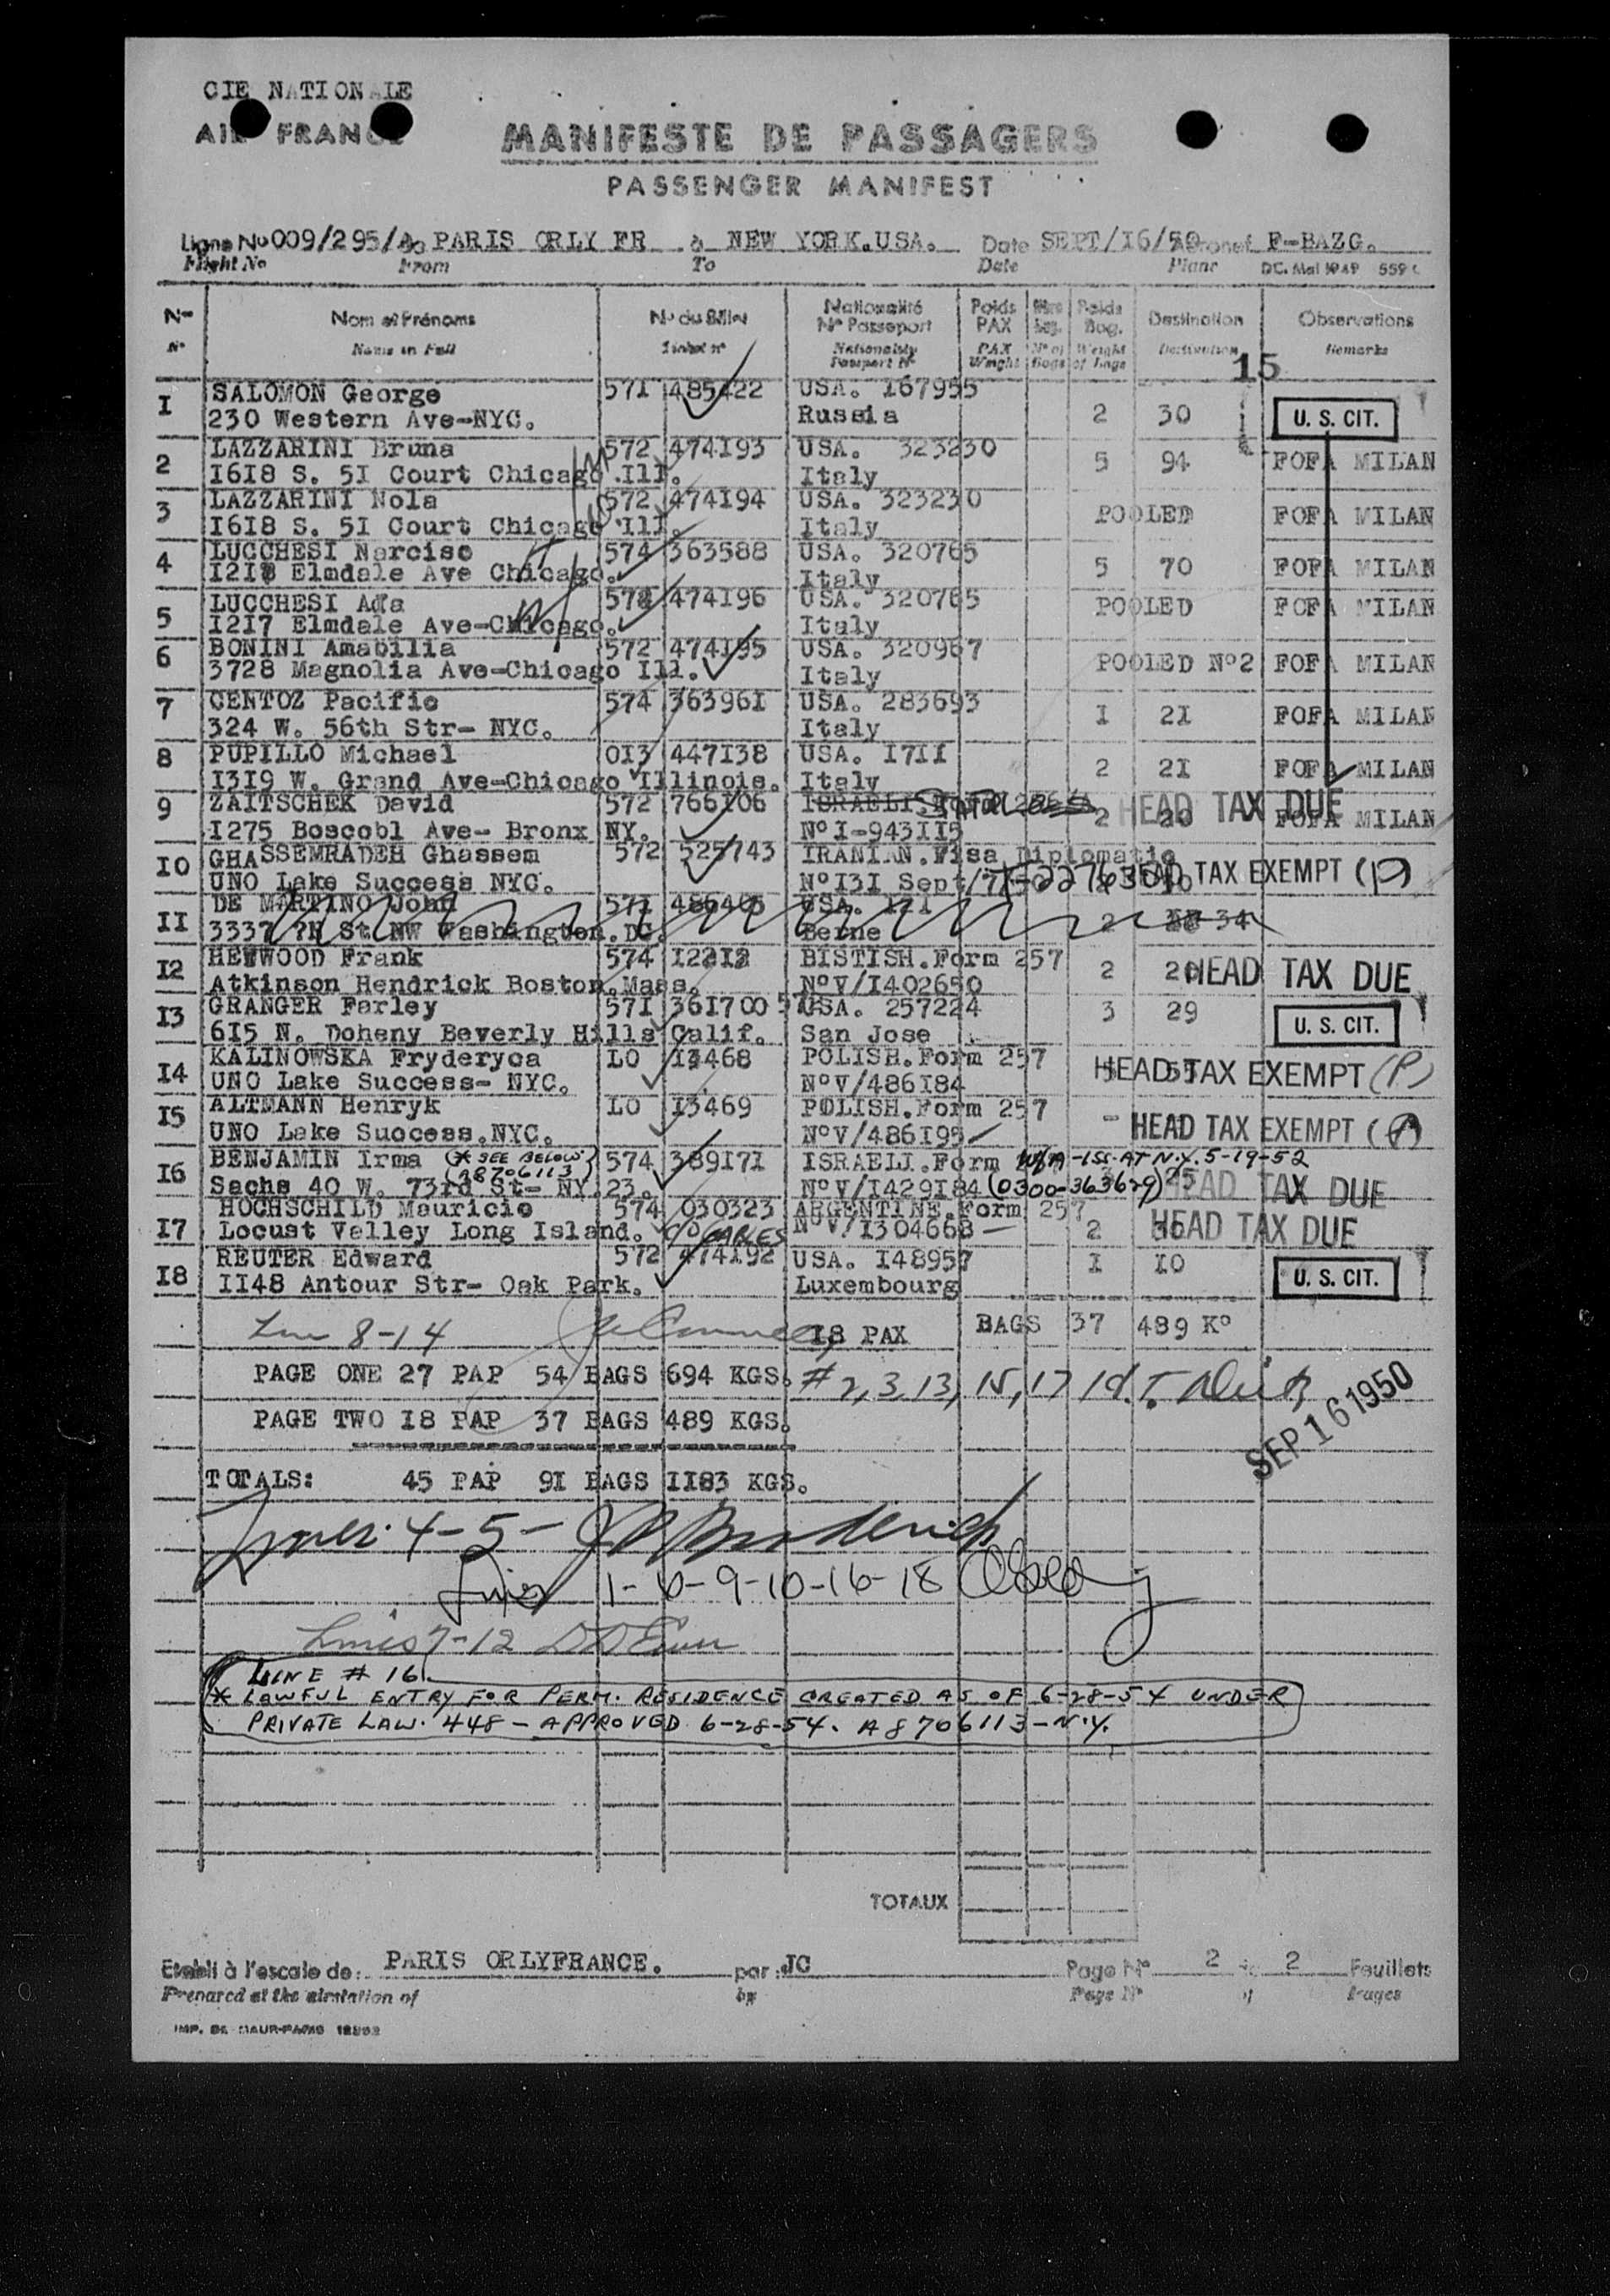 CIE NATIONALE
AIR FRANCE
MANIFESTE DE PASSAGERS
PASSENGER MANIFEST
Ligne No 009/295/A PARIS ORLY FR à NEW YORK.USA. Date SEPT/16/50 F-BAZG.
Flight No From To Date Plane DC. Mai 1949 559
No Nom et Prénoms No du Billet Nationalité No Passeport Poids PAX Poids Bag. Destination Observations
No Name in Full Ticket no Nationality Passport No PAX Weight No of Bags Weight of bags Destination Remarks
15
1 SALOMON George 571 485422 USA. 167955
230 Western Ave-NYC. Russia 2 30 U. S. CIT.
2 LAZZARINI Bruna 572 474193 USA. 323230
1618 S. 51 Court Chicago.Ill. Italy 5 94 FOFA MILAN
3 LAZZARINI Nola 572 474194 USA. 323230
1618 S. 51 Court Chicago Ill. Italy POOLED FOFA MILAN
4 LUCCHESI Narciso 574 363588 USA. 320765
1217 Elmdale Ave Chicago. Italy 5 70 FOFA MILAN
5 LUCCHESI Ada 572 474196 USA. 320765
1217 Elmdale Ave-Chicago. Italy POOLED FOFA MILAN
6 BONINI Amabilia 572 474195 USA. 320967
3728 Magnolia Ave-Chicago Ill. Italy POOLED No2 FOFA MILAN
7 CENTOZ Pacific 574 363961 USA. 283693
324 W. 56th Str- NYC. Italy 1 21 FOFA MILAN
8 PUPILLO Michael 013 447138 USA. 1711
1319 W. Grand Ave-Chicago Illinois. Italy 2 21 FOFA MILAN
9 ZAITSCHEK David 572 766106 ISRAELI HEAD TAX DUE
1275 Boscobl Ave- Bronx NY. No I-943115 2 20 FOFA MILAN
10 GHASSEMRADEH Ghassem 572 525743 IRANIAN.Visa Diplomatic
UNO Lake Success NYC. No131 Sept/7/50 HEAD TAX EXEMPT (P)
11 DE MARTINO John 571 486405 USA. 121
3337 ?N St NW Washington.DC. Berne 2 34
12 HEWWOOD Frank 574 12212 BISTISH.Form 257
Atkinson Hendrick Boston.Mass. NoV/1402650 2 20 HEAD TAX DUE
13 GRANGER Farley 571 361700 USA. 257224
615 N. Doheny Beverly Hills Calif. San Jose 3 29 U. S. CIT.
14 KALINOWSKA Fryderyca LO 13468 POLISH.Form 257
UNO Lake Success- NYC. NoV/486184 HEAD TAX EXEMPT (P)
15 ALTMANN Henryk LO 13469 POLISH.Form 257
UNO Lake Success.NYC. NoV/486195 - HEAD TAX EXEMPT (P)
16 BENJAMIN Irma (* SEE BELOW) (A8706113) 574 389171 ISRAELI.Form -ISS. AT N.Y. 5-19-52
Sachs 40 W. 73rd St- NY.23. NoV/1429184 (0300-363629) 25 HEAD TAX DUE
17 HOCHSCHILD Mauricio 574 030323 ARGENTINE.Form 257
Locust Valley Long Island. C/O CABLES NoV/1304668 2 HEAD TAX DUE
18 REUTER Edward 572 474192 USA. 148957
1148 Antour Str- Oak Park. Luxembourg 1 10 U. S. CIT.
8-14 18 PAX BAGS 37 489 Ko
PAGE ONE 27 PAP 54 BAGS 694 KGS. # 2, 3, 13, 15, 17
PAGE TWO 18 PAP 37 BAGS 489 KGS.
SEP 16 1950
TOTALS: 45 PAP 91 BAGS 1183 KGS.
4-5-
1-6-9-10-16-18
Lines 7-12
LINE # 16.
* LAWFUL ENTRY FOR PERM. RESIDENCE CREATED AS OF 6-28-54 UNDER
PRIVATE LAW. 448 - APPROVED 6-28-54. A8706113-N.Y.
TOTAUX
Etabli à l'escale de: PARIS ORLYFRANCE. par: JC Page No 2 2 Feuillets
Prepared at the airstation of by Page No of Pages